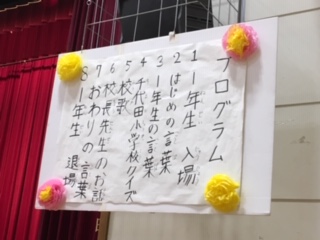 プログラム
1 1年生 入場
2 はじめの言葉
3 1年生の言葉
4 千代田小学校クイズ
5 校歌
6 校長先生のお話
7 おわりの言葉
8 1年生 退場